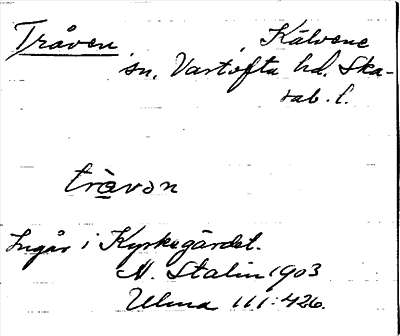 Tråven, Kälvene
sn. Vartofta hd. Ska-
rab. l.
tràvən
Ingår i Kyrkegärdet.
M. Stalin 1903
Ulma 111:426.